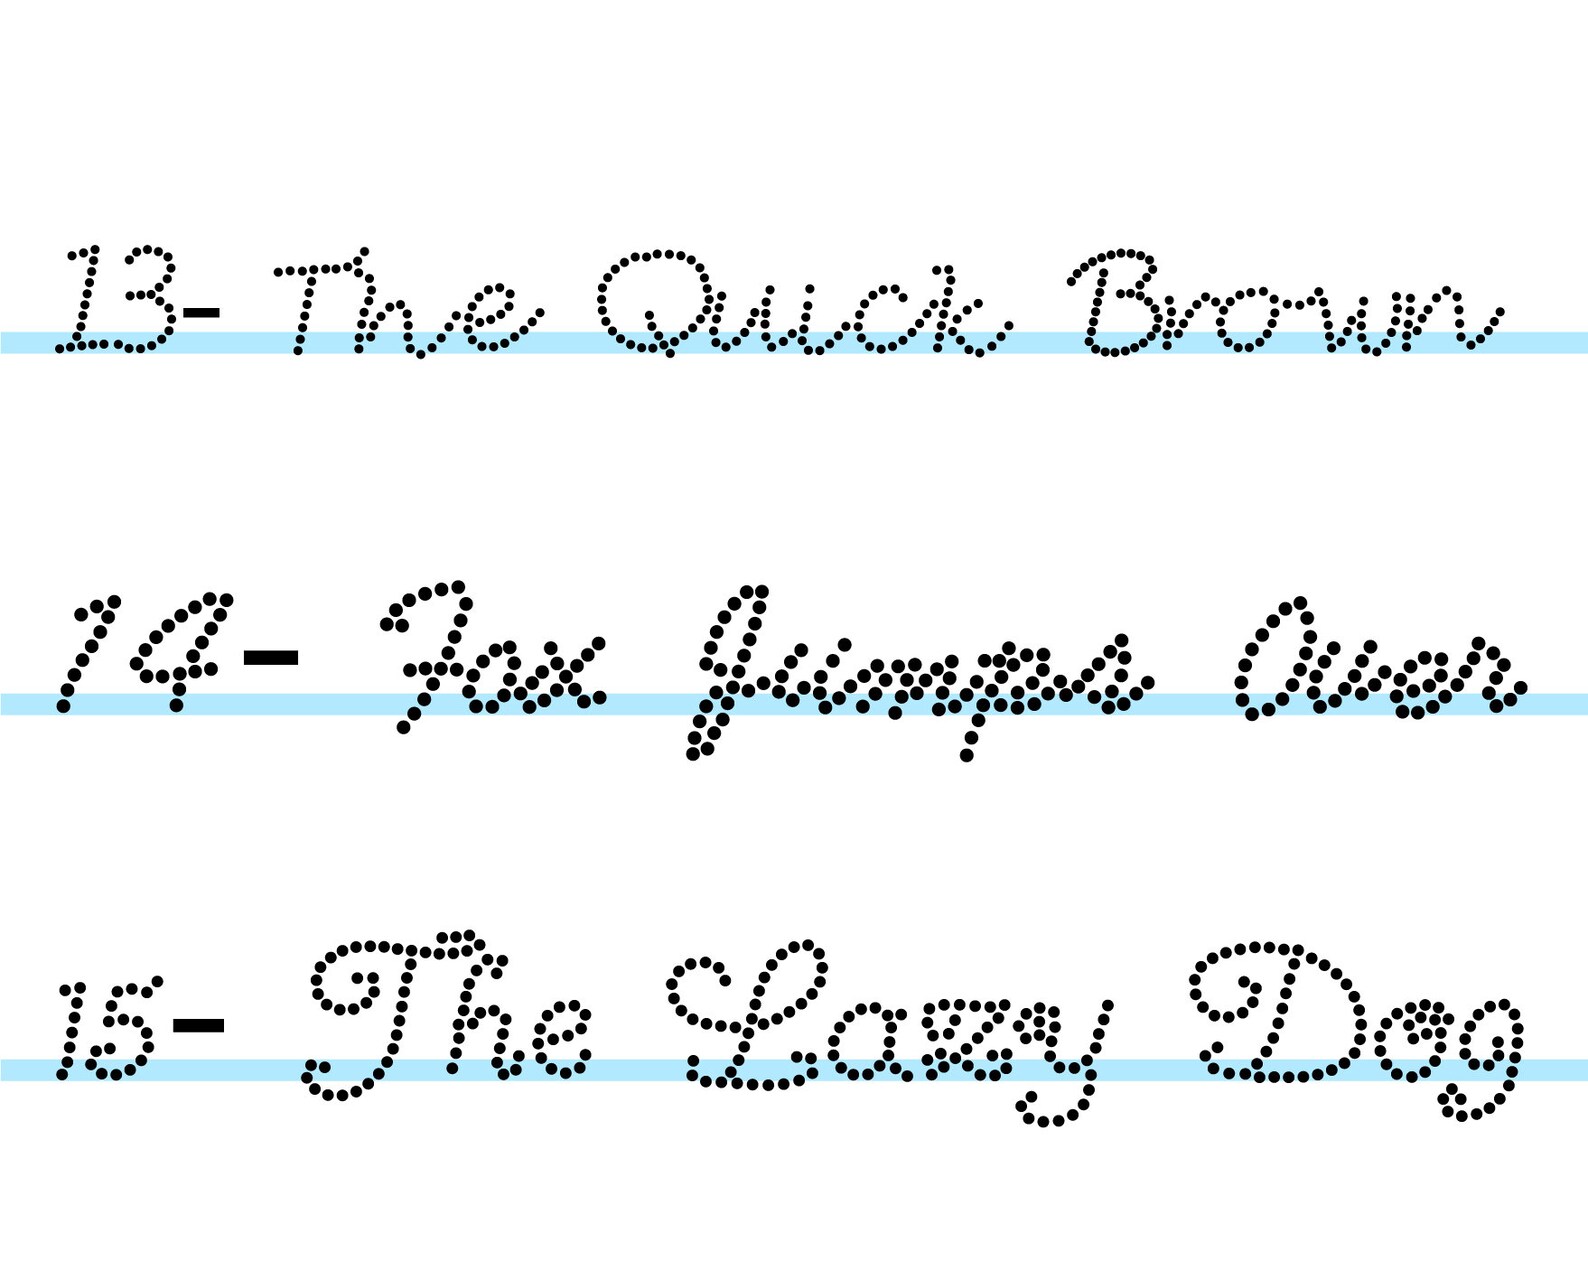 13- The Quick Brown
14- Fox Jumps Over
15- The Lazzy Dog